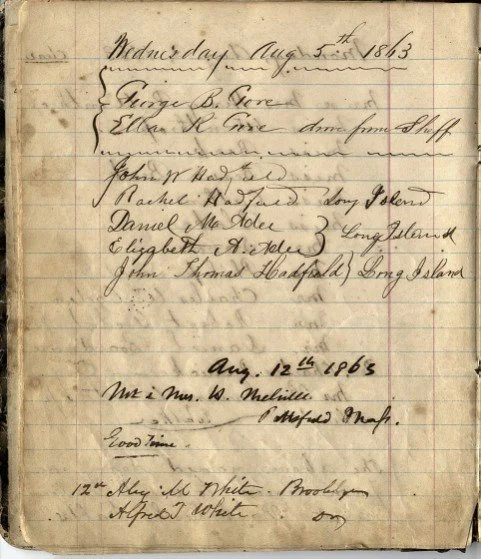 Wednesday Aug 5th 1863
George B. Gore
Ellen K Gore down from Sheff
John W Hadfield
Rachel Hadfield Long Island
Daniel M. Adee
Elizabeth A. Adee } Long Island
John Thomas Hadfield } Long Island
Aug. 12th 1863
Mr & Mrs. H. Melville
Pittsfield Mass.
Good time.
12th Alex M White. Brooklyn
Alfred T White. Do